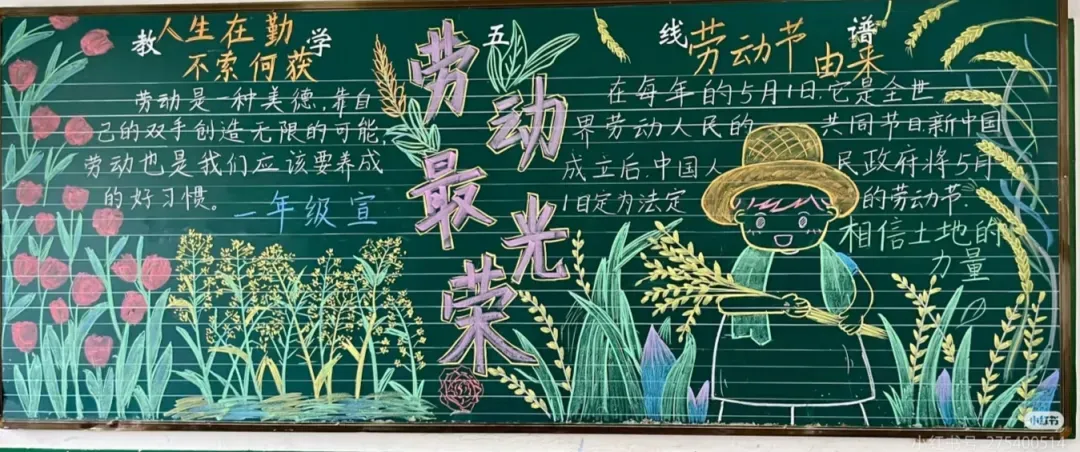 教学五线谱
人生在勤
不索何获
劳动是一种美德,靠自
己的双手创造无限的可能,
劳动也是我们应该要养成
的好习惯。
一年级宣
劳动最光荣
劳动节
由来
在每年的5月1日,它是全世
界劳动人民的 共同节日,新中国
成立后,中国人 民政府将5月
1日定为法定 的劳动节.
相信土地的
力量
小红书
小红书号 275400514